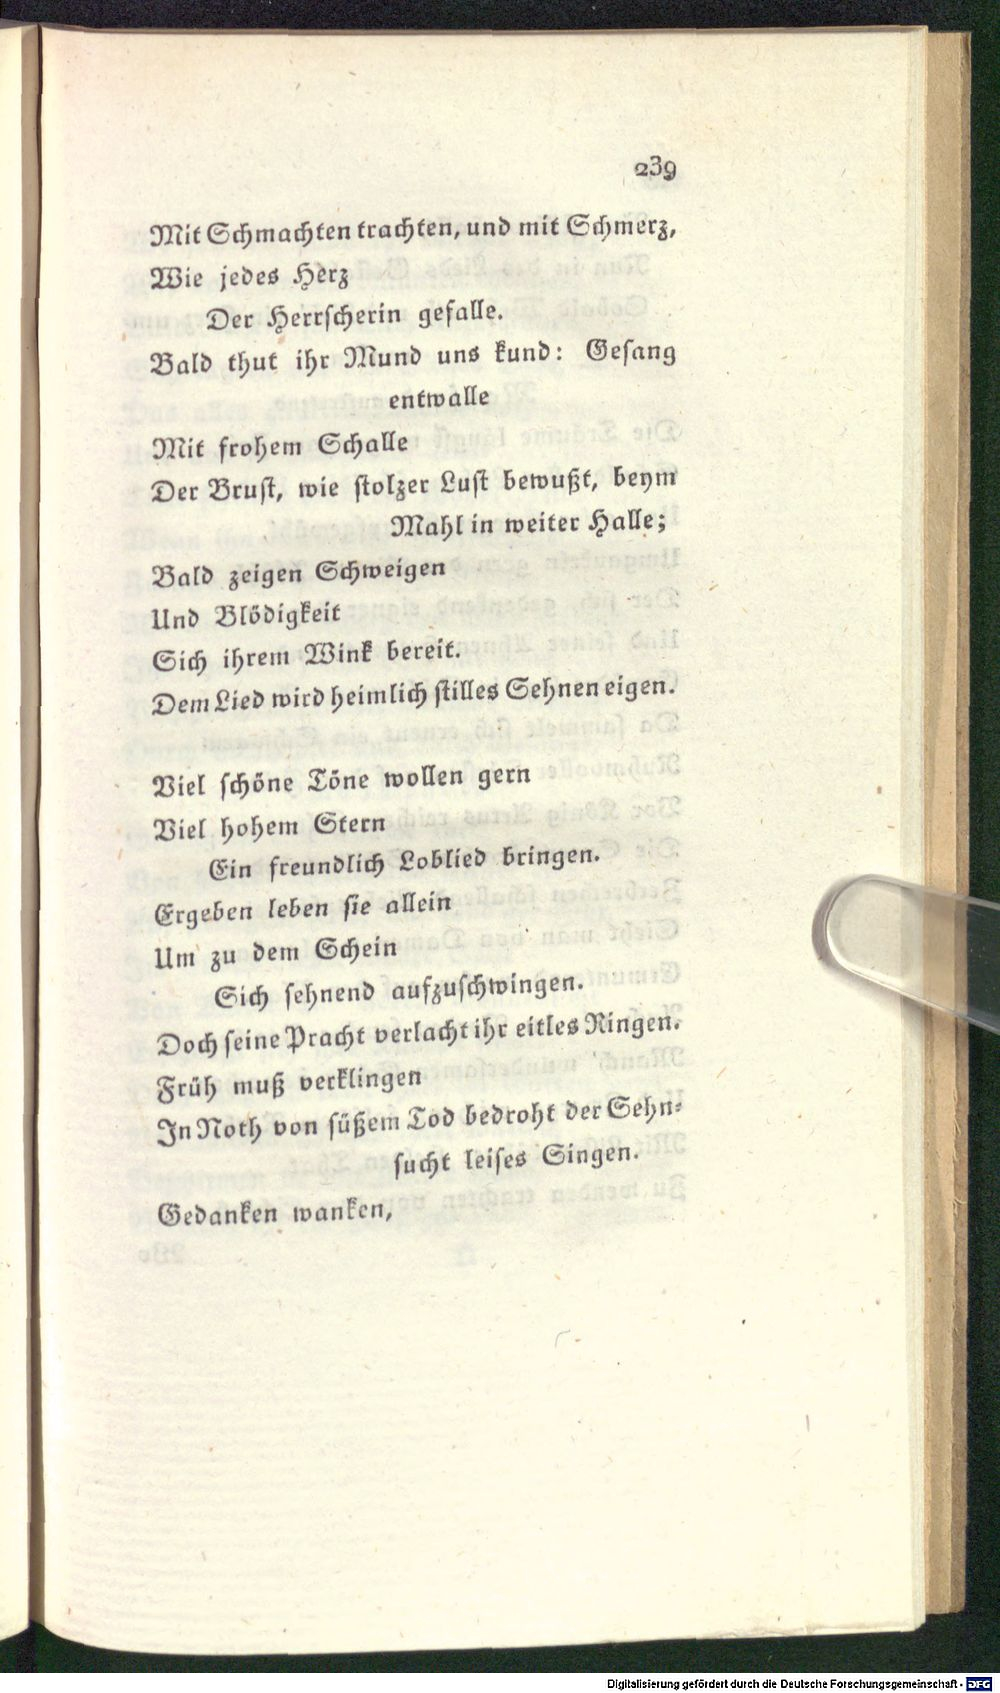 239
Mit Schmachten trachten, und mit Schmerz,
Wie jedes Herz
Der Herrscherin gefalle.
Bald thut ihr Mund uns kund: Gesang
entwalle
Mit frohem Schalle
Der Brust, wie stolzer Lust bewußt, beym
Mahl in weiter Halle;
Bald zeigen Schweigen
Und Blödigkeit
Sich ihrem Wink bereit.
Dem Lied wird heimlich stilles Sehnen eigen.
Viel schöne Töne wollen gern
Viel hohem Stern
Ein freundlich Loblied bringen.
Ergeben leben sie allein
Um zu dem Schein
Sich sehnend aufzuschwingen.
Doch seine Pracht verlacht ihr eitles Ringen.
Früh muß verklingen
In Noth von süßem Tod bedroht der Sehn-
sucht leises Singen.
Gedanken wanken,
Digitalisierung gefördert durch die Deutsche Forschungsgemeinschaft - DFG